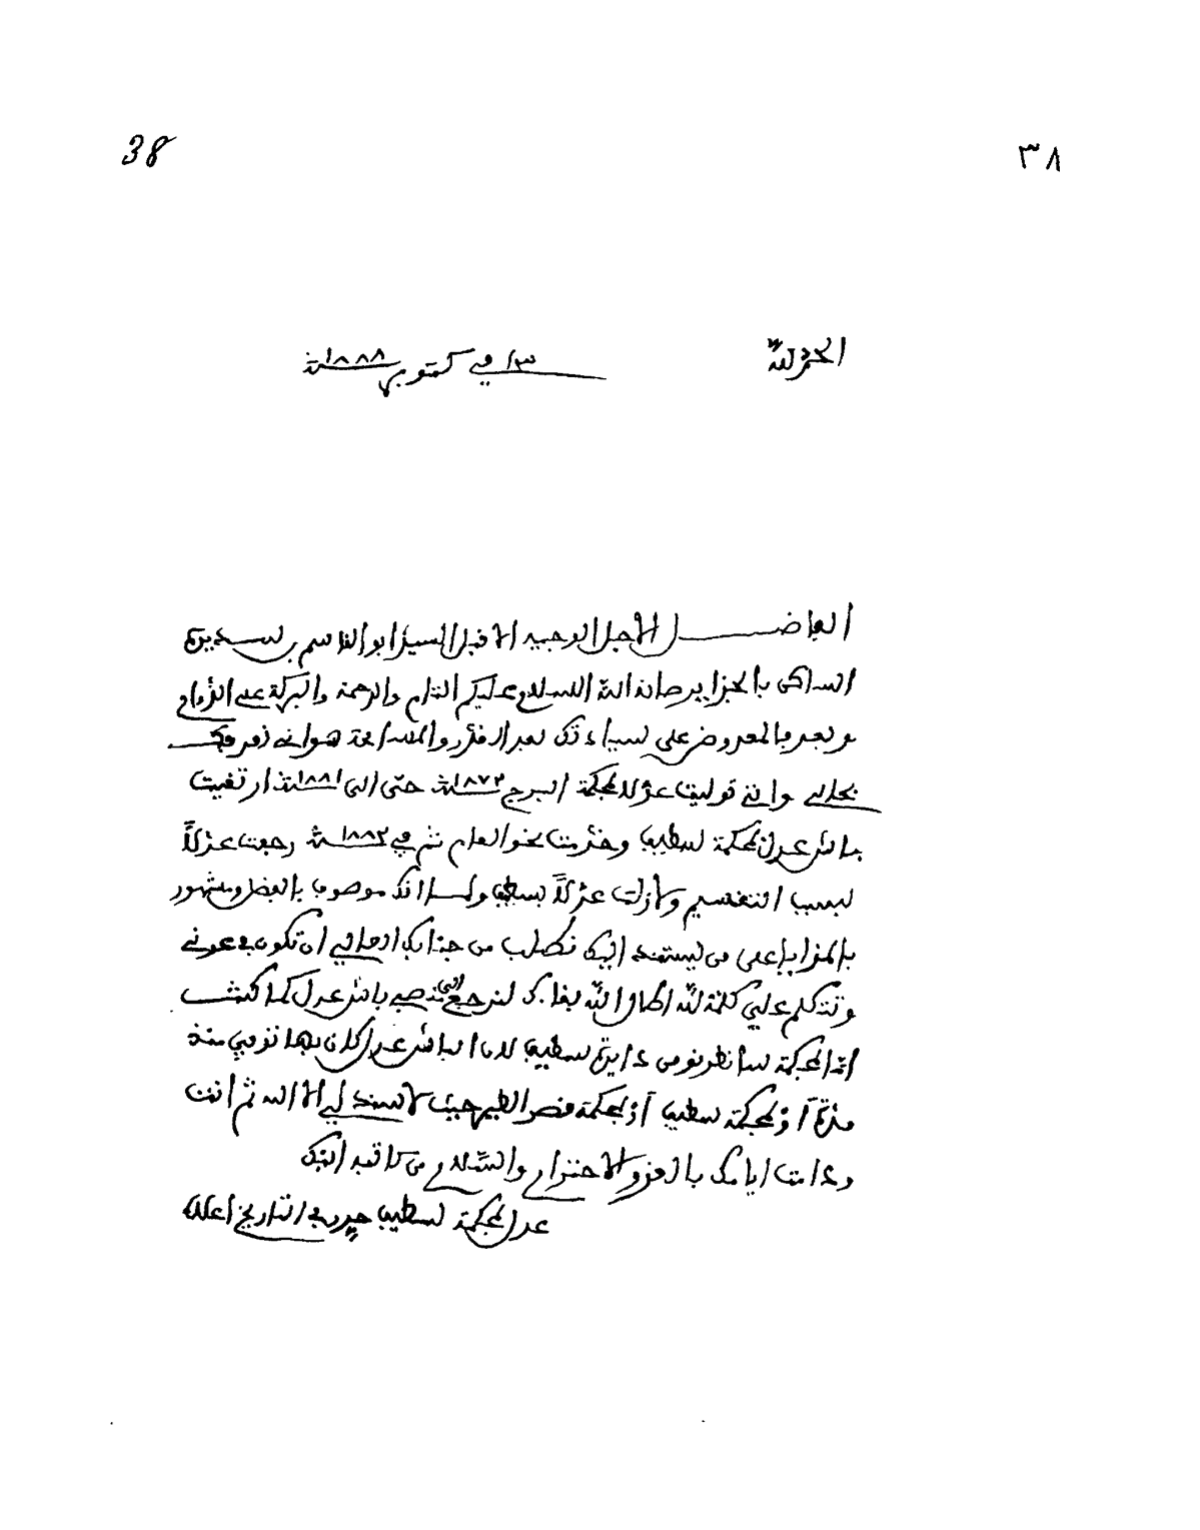 38 ٣٨
الحمد لله ١٣ في كتوبر سنة ١٨٨٨
الفاضل الأجل الوجيه الأفيل السيد ابو القاسم بن سديرة
الساكن بالجزاير صانه الله السلام عليكم التام والرحمة والبركة على الدوام
وبعد فالمعروض على سيادتك بعد هو انني نعرفك
بحالي وانني توليت عدلا لمحكمة البرج سنة ١٨٧٢ حتى الى سنة ١٨٨١ ارتقيت
باش عدل لمحكمة سطيف وخدمت نحو العام ثم في سنة ١٨٨٢ رجعت عدلاً
بسبب التنقسيم ولازلت عدلاً بسطيف ولما انك موصوف بالفضل ومشهور
بالمزايا على من يستند اليك نطلب من جنابك العالي ان تكون في عوني
وتتكلم علي كلمة لله اطال الله بقاك لنرجع الى نصبي باش عدل كما كنت
اما لمحكمة من دايرة سطيف لان الباش عدل كان بها توفي منذ
مدة أو لمحكمة سطيف أو لمحكمة قصر الطير حيث لا سند لي الا الله ثم انت
ودامت ايامك بالعز والاحترام والسلام من كاتبه اليك
عدل لمحكمة سطيف في التاريخ اعلاه